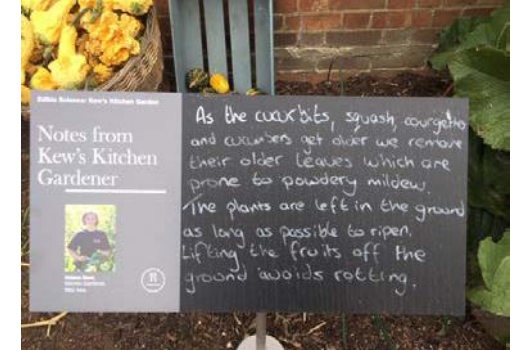 Edible Science: Kew's Kitchen Garden
Notes from
Kew's Kitchen
Gardener
As the cucurbits, squash, courgette
and cucumbers get older we remove
their older leaves which are
prone to powdery mildew.
The plants are left in the ground
as long as possible to ripen.
Lifting the fruits off the
ground avoids rotting.